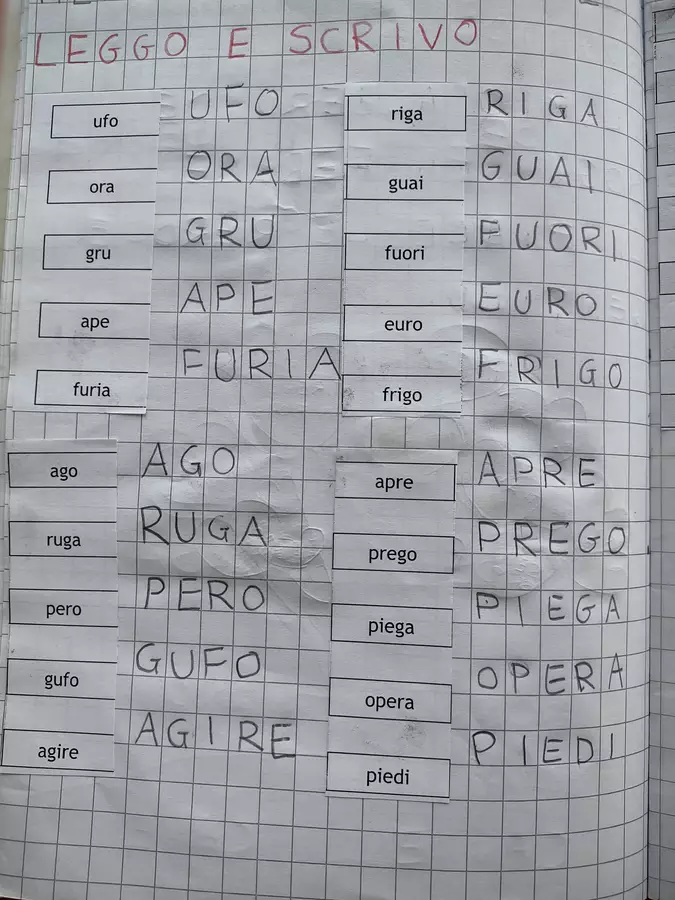 LEGGO E SCRIVO
ufo UFO
ora ORA
gru GRU
ape APE
furia FURIA
riga RIGA
guai GUAI
fuori FUORI
euro EURO
frigo FRIGO
ago AGO
ruga RUGA
pero PERO
gufo GUFO
agire AGIRE
apre APRE
prego PREGO
piega PIEGA
opera OPERA
piedi PIEDI